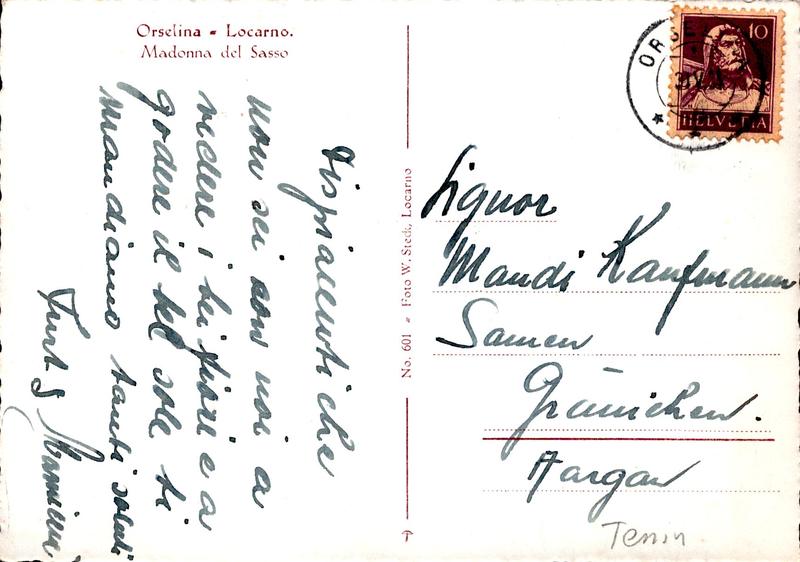 Orselina - Locarno.
Madonna del Sasso
Dispiacenti che
non sei con noi a
vedere i bei fiori e a
godere il bel sole ti
mandiamo tanti saluti
Kurt &
No. 601 - Foto W. Steck, Locarno
10
HELVETIA
Signor
Mandi Kaufmann
Samen
Gränichen.
Aargau
Tessin